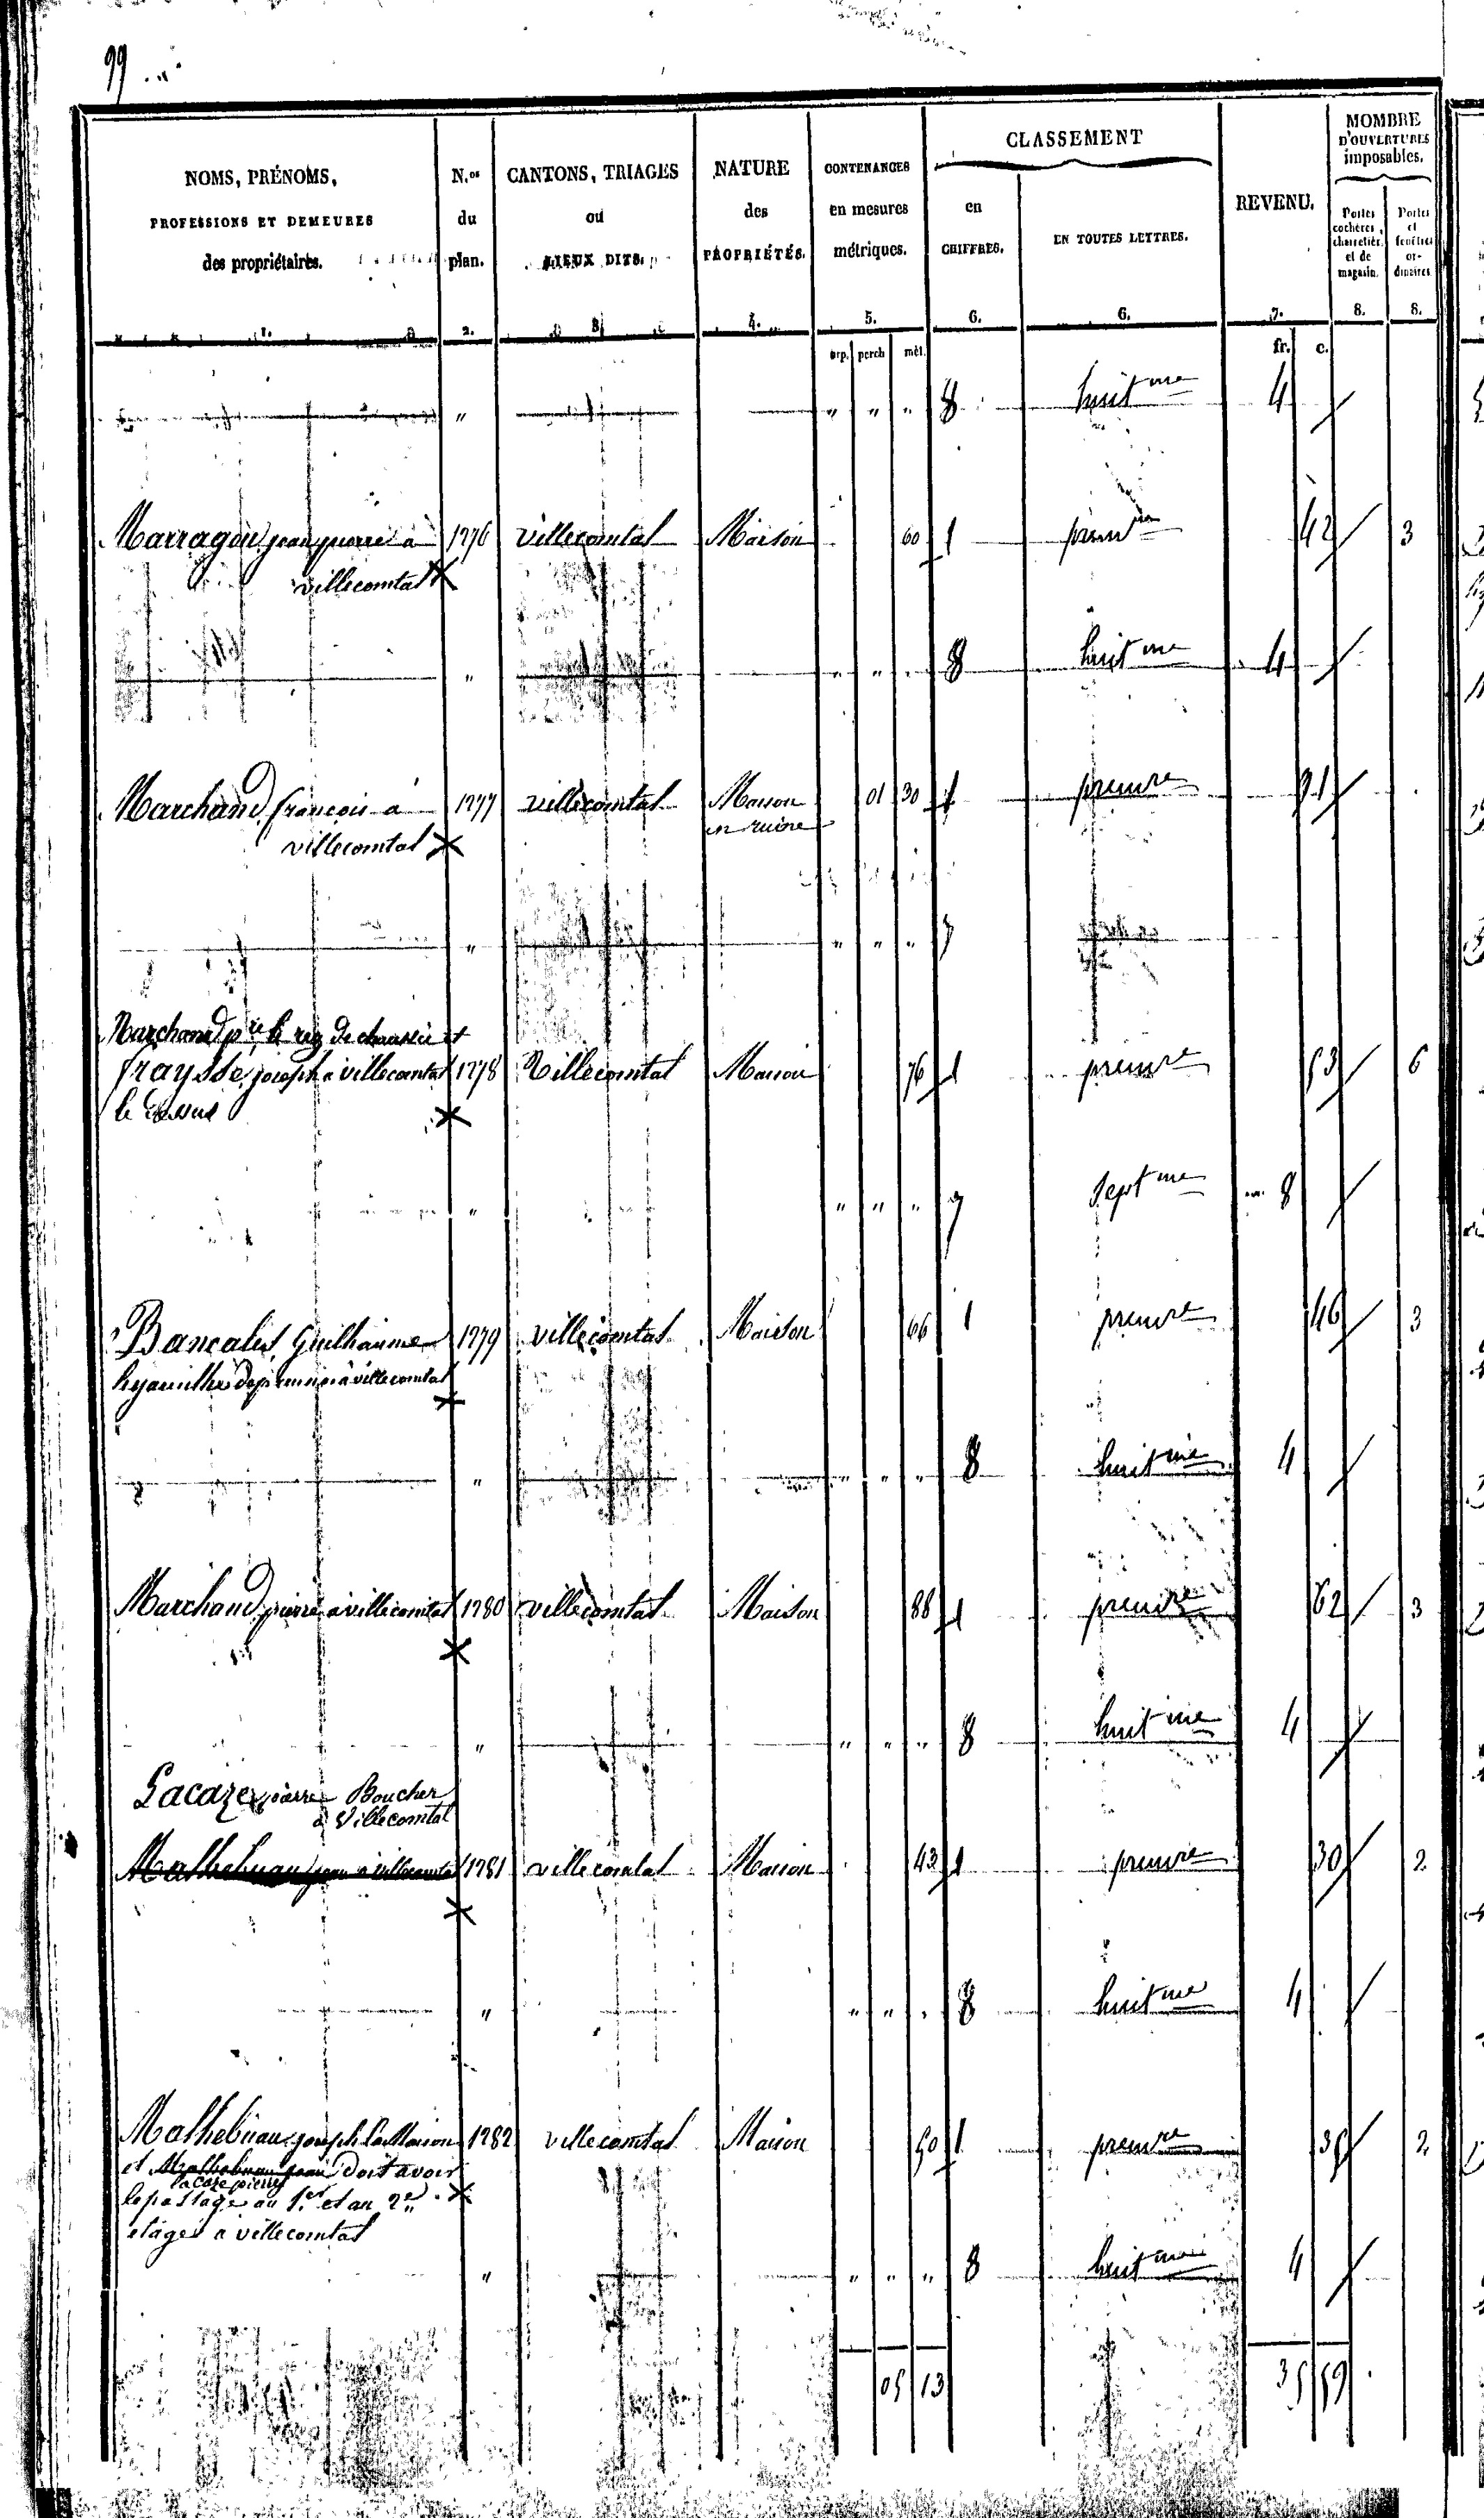 99
NOMS, PRÉNOMS, PROFESSIONS ET DEMEURES des propriétaires. 1.
N.os du plan. 2.
CANTONS, TRIAGES ou LIEUX DITS. 3.
NATURE des PROPRIÉTÉS. 4.
CONTENANCES en mesures métriques. 5.
CLASSEMENT
en CHIFFRES. 6.
EN TOUTES LETTRES. 6.
REVENU. 7.
MOMBRE D'OUVERTURES imposables.
Portes cochères, charretièr. et de magasin. 8.
Portes et fenêtres or- dinaires 8.
arp. perch mèt. fr. c.
" " " " 8 huit me 4
Marragou jean pierre à 1276 villecomtal Maison 60 1 prem re 42 3
villecomtal
" " " " 8 huit me 4
Marchand francois à 1277 villecomtal Maison 01 30 1 premre 91
villecomtal en ruine
" " " " 7
Marchand pre le rez de chaussée et
fraysse, joseph a villecomtal 1278 Villecomtal Maison 76 1 premre 53 6
le dessus
" " " " 7 sept me 8
Bancalis, Guilhaume 1279 villecomtal Maison 66 1 premre 46 3
hyacinthe à villecomtal
" " " " 8 huit me 4
Marchand pierre a villecomtal 1280 villecomtal Maison 88 1 premre 62 3
" " " " 8 huit me 4
Lacaze, pierre Boucher
à Villecomtal
Malhebuau jean a villecomtal 1281 villecomtal Maison 43 1 premre 30 2
" " " " 8 huit me 4
Malhebuau joseph la Maison 1282 villecomtal Maison 50 1 premre 35 2
et Malhebuau jean doit avoir
lacaze pierre
le passage au 1.er et au 2e
étages a villecomtal
" " " " 8 huit me 4
05 13 35 59